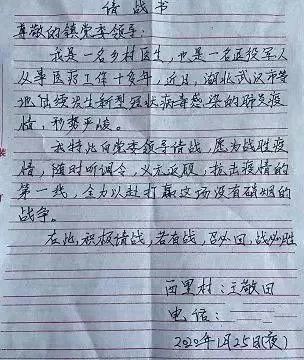 请战书
尊敬的镇党委领导：
我是一名乡村医生，也是一名退役军人
从事医疗工作十多年，近日，湖北武汉市等
地陆续发生新型冠状病毒感染的肺炎疫
情，形势严峻。
我特此向党委领导请战，愿为战胜疫
情，随时听调令，义无反顾，抗击疫情的
第一线，全力以赴打赢这场没有硝烟的
战争。
在此，积极请战，若有战，召必回，战必胜
西里村：王敬田
电话：
2020年1月25日（夜）